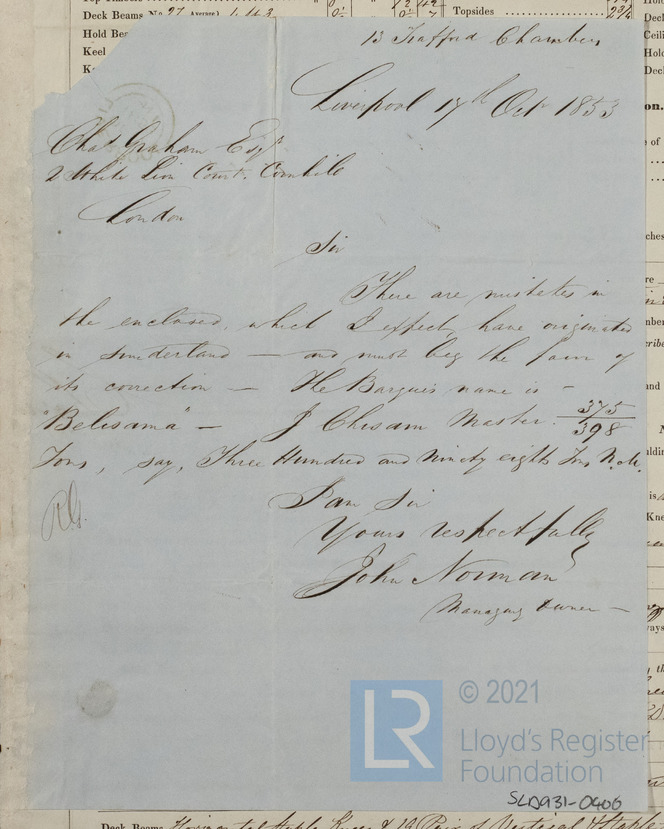 Deck Beams No 27 Average) 1.4.3
Topsides
Hold Bea
Keel
13 Trafford Chambers
Liverpool 17th Octr 1853
Chas Graham Esqr
2 White Lion Court. Cornhill
London
Sir
There are mistakes in
the enclosed, which I expect, have originated
in Sunderland — and must beg the favor of
its correction — The Barque's name is –
"Belisama" – J Chisam Master. 375/398
Tons, say, Three Hundred and Ninety eight Tons N.M.
I am Sir
Yours respectfully
John Norman
Managing Owner —
LR
© 2021
Lloyd's Register
Foundation
SLD931-0406
Deck Beams